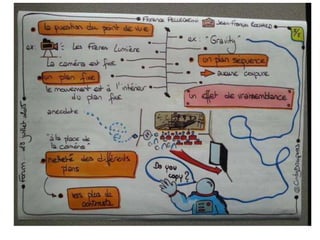 Florence PELLEGRINI
Jean-François ROUZARD
la question du point de vue
ex: Les Frères Lumière
La caméra est fixe
un plan fixe
le mouvement est à l'intérieur
du plan fixe
anecdote
"à la place de
la caméra"
netteté des différents
plans
les plus de
contraste
ex: "Gravity"
un plan séquence
aucune coupure
un effet de vraisemblance
Do you
copy?
Forum 08 juillet 2015